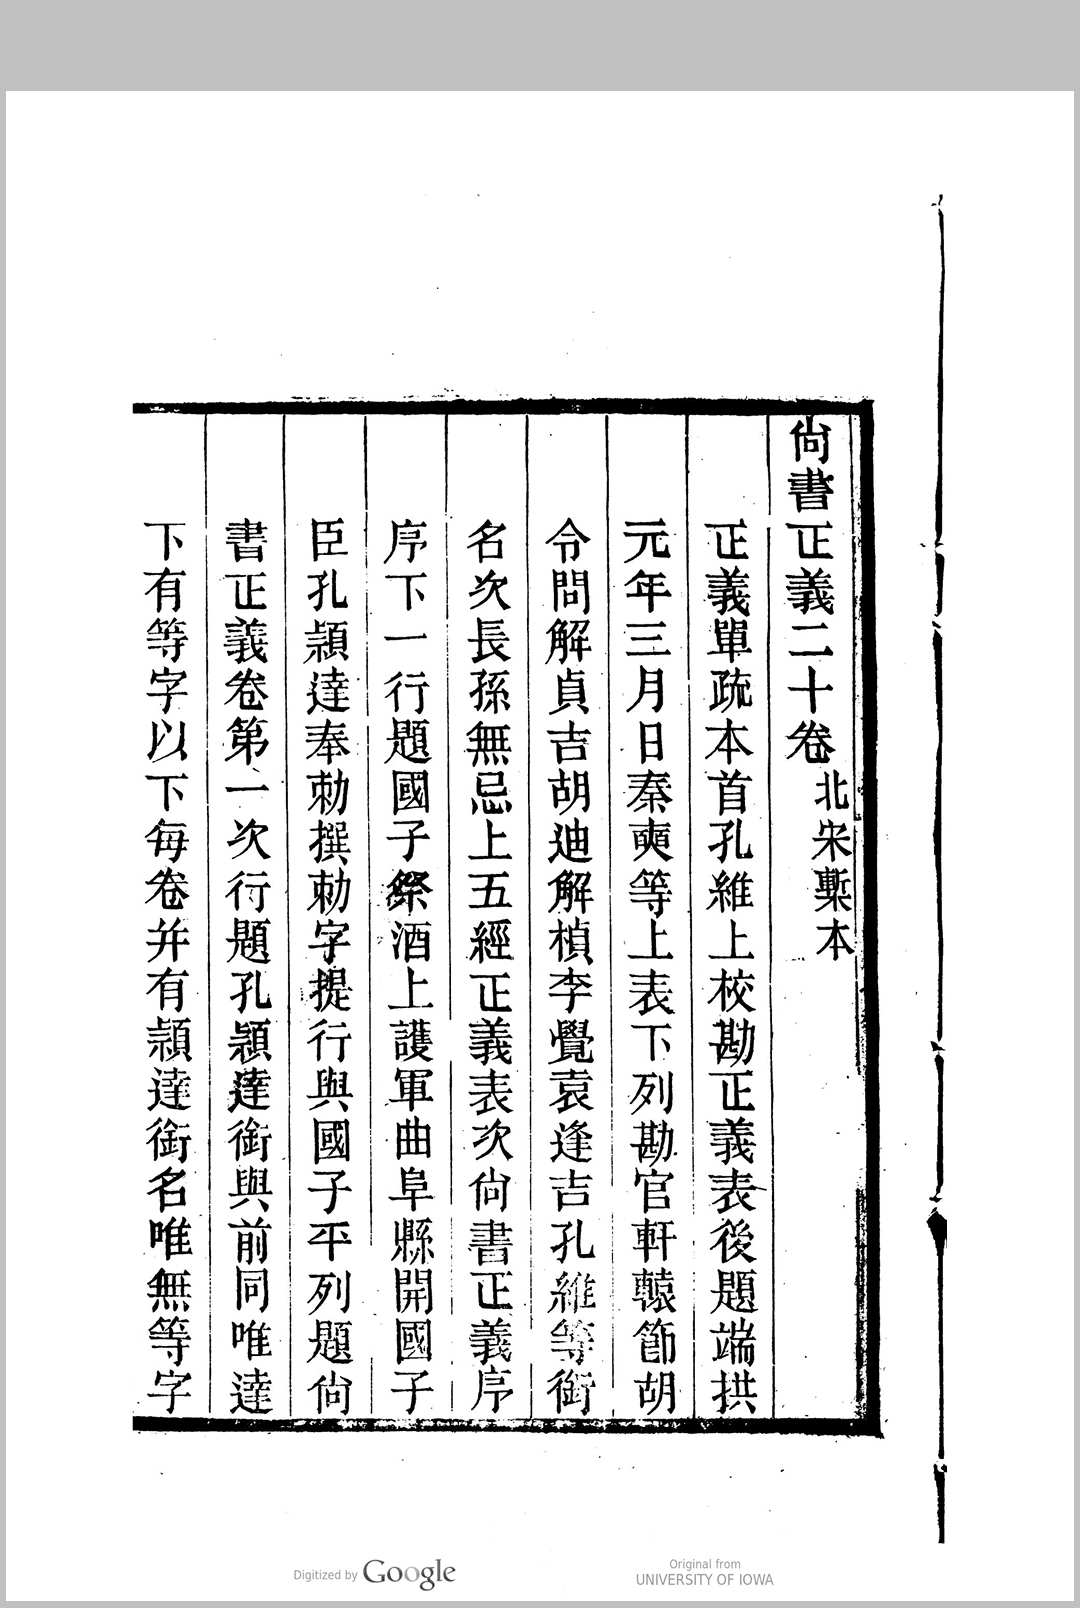 尙書正義二十卷北宋槧本
正義單疏本首孔維上校勘正義表後題端拱
元年三月日秦奭等上表下列勘官軒轅節胡
令問解貞吉胡迪解楨李覺袁逢吉孔維等銜
名次長孫無忌上五經正義表次尙書正義序
序下一行題國子祭酒上護軍曲阜縣開國子
臣孔頴達奉勅撰勅字提行與國子平列題尙
書正義卷第一次行題孔頴達銜與前同唯達
下有等字以下每卷幷有頴達銜名唯無等字
Digitized by Google
Original from
UNIVERSITY OF IOWA